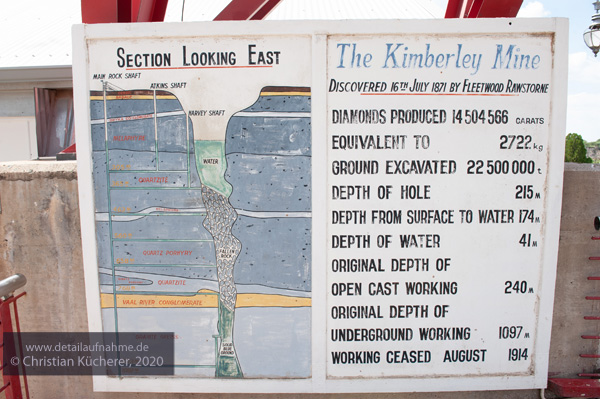 SECTION LOOKING EAST
MAIN ROCK SHAFT
ATKINS SHAFT
HARVEY SHAFT
WATER
MELAPHYRE
QUARTZITE
FALLEN
ROCK
QUARTZ PORPHYRY
QUARTZITE
VAAL RIVER CONGLOMERATE
SOLID
BLUE
GROUND
The Kimberley Mine
DISCOVERED 16TH JULY 1871 BY FLEETWOOD RAWSTORNE
DIAMONDS PRODUCED 14 504 566 CARATS
EQUIVALENT TO 2722 kg
GROUND EXCAVATED 22 500 000 t
DEPTH OF HOLE 215 M
DEPTH FROM SURFACE TO WATER 174 M
DEPTH OF WATER 41 M
ORIGINAL DEPTH OF
OPEN CAST WORKING 240 M
ORIGINAL DEPTH OF
UNDERGROUND WORKING 1097 M
WORKING CEASED AUGUST 1914
www.detailaufnahme.de
© Christian Kücherer, 2020